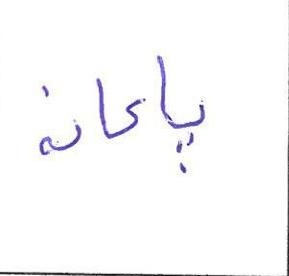 پایانه